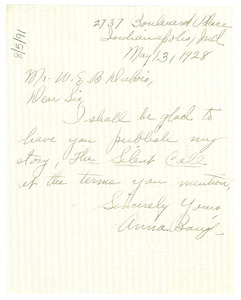 2737 Boulevard Place
Indianapolis, Ind
May 13, 1928
Mr. W. E. B Dubois,
Dear Sir,
I shall be glad to
have you publish my
story, The Silent Call
at the terms you mention,
Sincerely Yours
Anna